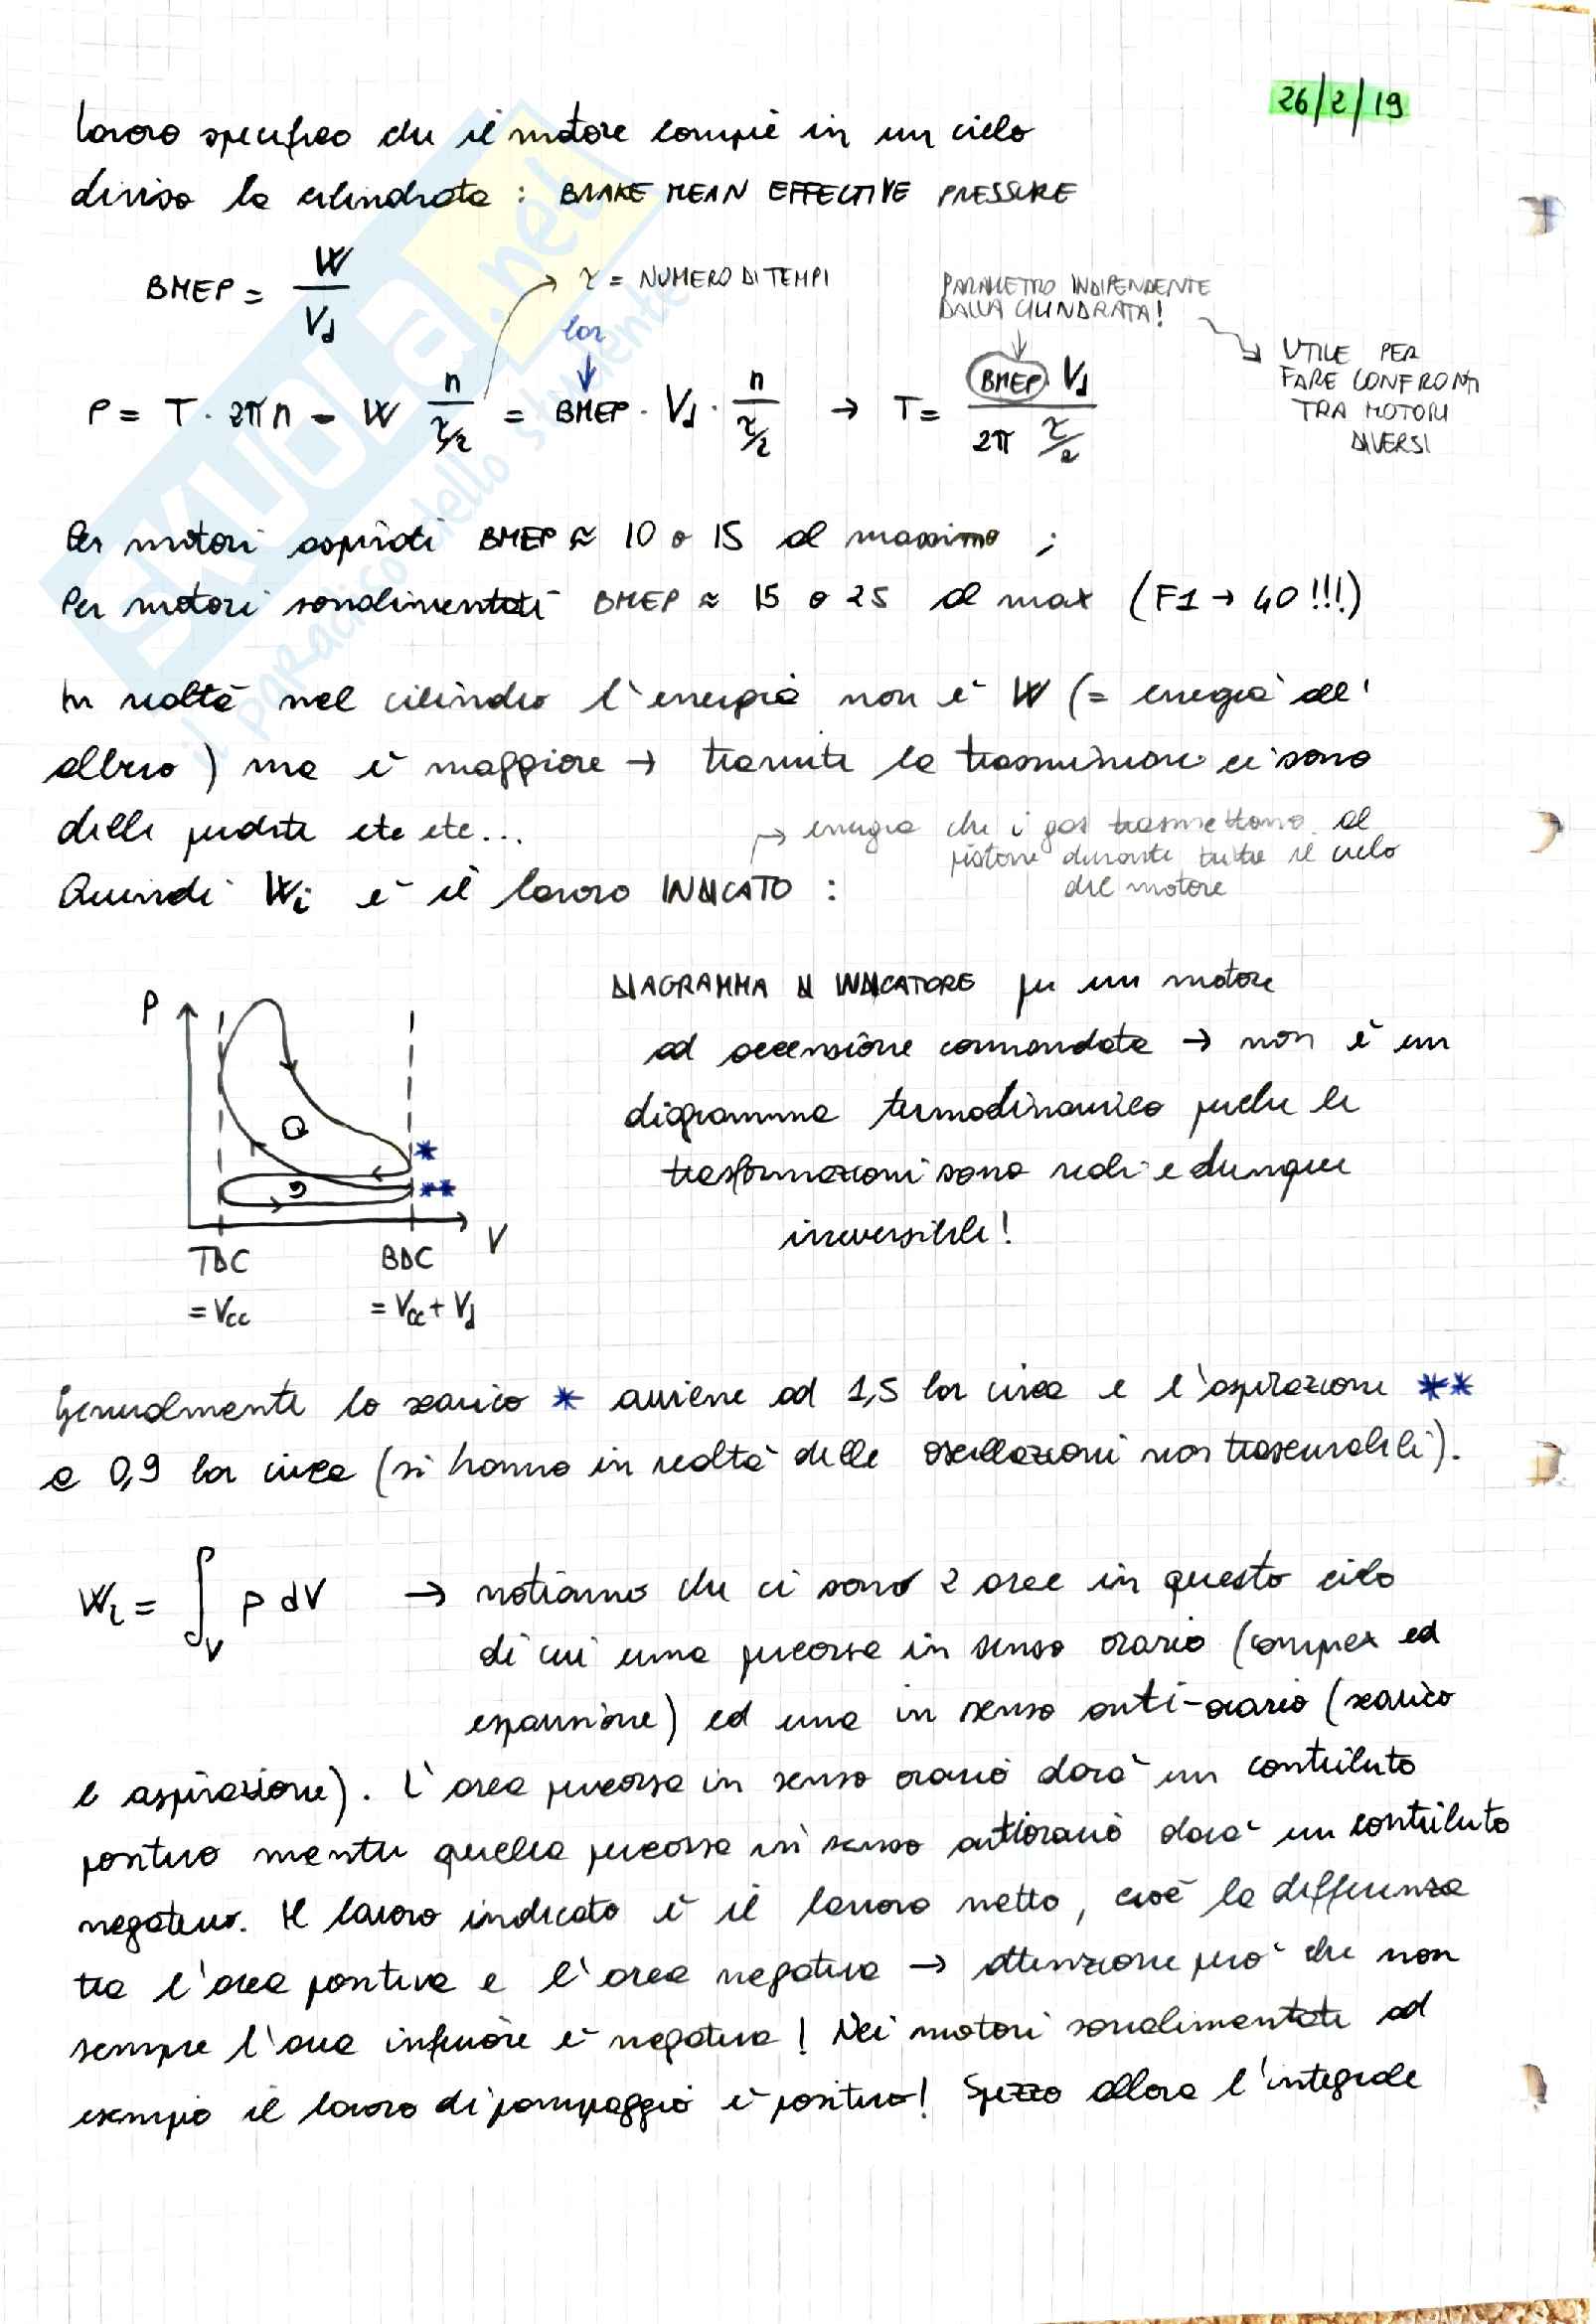 26/2/19
lavoro specifico che il motore compie in un ciclo
diviso la cilindrata : BRAKE MEAN EFFECTIVE PRESSURE
BMEP = W / Vd
τ = NUMERO DI TEMPI
PARAMETRO INDIPENDENTE
DALLA CILINDRATA!
bar
UTILE PER
FARE CONFRONTI
TRA MOTORI
DIVERSI
P = T · 2πn = W n/(τ/2) = BMEP · Vd · n/(τ/2) → T = BMEP · Vd / 2π τ/2
Per motori aspirati BMEP ≈ 10 o 15 al massimo ;
Per motori sovralimentati BMEP ≈ 15 o 25 al max (F1 → 40!!!)
In realtà nel cilindro l'energia non è W (= energia all'
albero) ma è maggiore → tramite la trasmissione ci sono
delle perdite etc etc...
→ energia che i gas trasmettono al
pistone durante tutto il ciclo
del motore
Quindi Wi è il lavoro INDICATO :
DIAGRAMMA DI INDICATORE per un motore
ad accensione comandata → non è un
digramma termodinamico perché le
trasformazioni sono reali e dunque
irreversibili!
P
*
**
V
TDC
BDC
= Vcc
= Vcc + Vd
Generalmente lo scarico * avviene ad 1,5 bar circa e l'aspirazione **
a 0,9 bar circa (si hanno in realtà delle oscillazioni non trascurabili).
Wi = ∫V p dV → notiamo che ci sono 2 aree in questo ciclo
di cui una percorsa in senso orario (compres ed
espansione) ed una in senso anti-orario (scarico
e aspirazione). L'area percorsa in senso orario darà un contributo
positivo mentre quella percorsa in senso antiorario darà un contributo
negativo. Il lavoro indicato è il lavoro netto, cioè la differenza
tra l'area positiva e l'area negativa → attenzione però che non
sempre l'area inferiore è negativa! Nei motori sovralimentati ad
esempio il lavoro di pompaggio è positivo! Spezzo allora l'integrale
SKUOLA.net
il paradiso dello studente